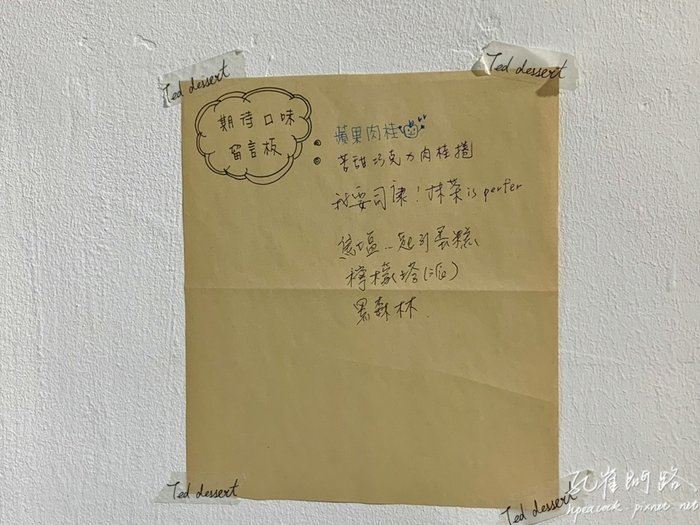 Ted dessert
Ted dessert
期待口味
留言板
蘋果肉桂
苦甜巧克力肉桂捲
我要司康！抹茶is perfer
焦塩..起司蛋糕
檸檬塔(派)
黑森林.
Ted dessert
Ted dessert
孔雀開路
hpeacock.pixnet.net